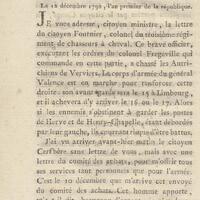 Le 12 décembre 1792, l'an premier de la république.
JE vous adresse, citoyen ministre, la lettre
du citoyen Fournier, colonel du troisième régi-
ment de chasseurs à cheval. Ce brave officier,
exécutant les ordres du colonel Frégeville qui
commande en cette partie, a chassé les Autri-
chiens de Verviers. Le corps d'armée du général
Valence est en marche pour renforcer cette
droite: son avant-garde sera le 15 à Limbourg,
et il achevera d'y arriver le 16 ou le 17. Alors
si les ennemis s'obstinent à garder les postes
de Herve et de Henry-Chapelle, étant débordés
par leur gauche, ils courront risque d'être battus.
J'ai vu arriver avant-hier matin le citoyen
Cerfbère avec lettre de vous, mais avec une
lettre du comité des achats, pour m'offrir tous
ses services tant personnels que pour l'armée.
C'est le 10 décembre que m'arrive cet envoyé
du comité des achats. Cet homme apporte,